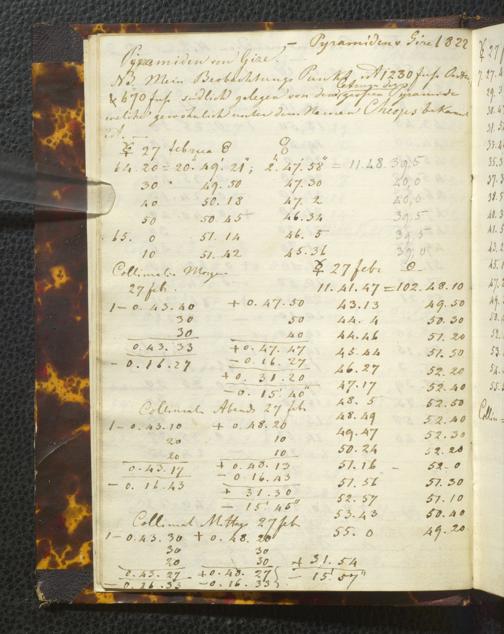 Pyramiden v Gize 1822
Pyramiden von Gize.
NB Mein Beobachtungs Punkt ist 1230 fus
& 670 fus südlich gelegen von der großen Pyramide
welche gewöhnlich unter dem Namen Cheops bekannt
ist.
☿ 27 februar
64.20 = 20.49.21; 2.47.58 = 11.48.39,5
30 49.50 47.30 40,0
40 50.18 47.2 40,0
50 50.45 46.34 39,5
65. 0 51.14 46.5 39,5
10 51.42 45.36 39,0
Collimat. Morgen
27 feb.
1 - 0.43.40 + 0.47.50
30 50
30 40
0.43.33 + 0.47.47
- 0.16.27 - 0.16.27
+ 0.31.20
- 0.15.40"
Collimat. Abends 27 feb
1 - 0.43.10 + 0.48.20
20 10
20 10
0.43.17 + 0.48.13
- 0.16.43 - 0.16.43
+ 31.30
- 15'.45"
Collimat Mittag 27 feb
1 - 0.43.30 + 0.48.20
30 30
20 30
0.43.27 + 0.48.27
- 0.16.33 - 0.16.33
+ 31.54
- 15'.57"
☿ 27 febr
11.41.47 = 102.48.10
43.13 49.50
44.4 50.30
44.46 51.20
45.44 51.50
46.27 52.20
47.17 52.40
48.5 52.50
48.49 52.40
49.47 52.30
50.24 52.20
51.16 - 52.0
51.56 51.30
52.57 51.10
53.43 50.40
55.0 49.20